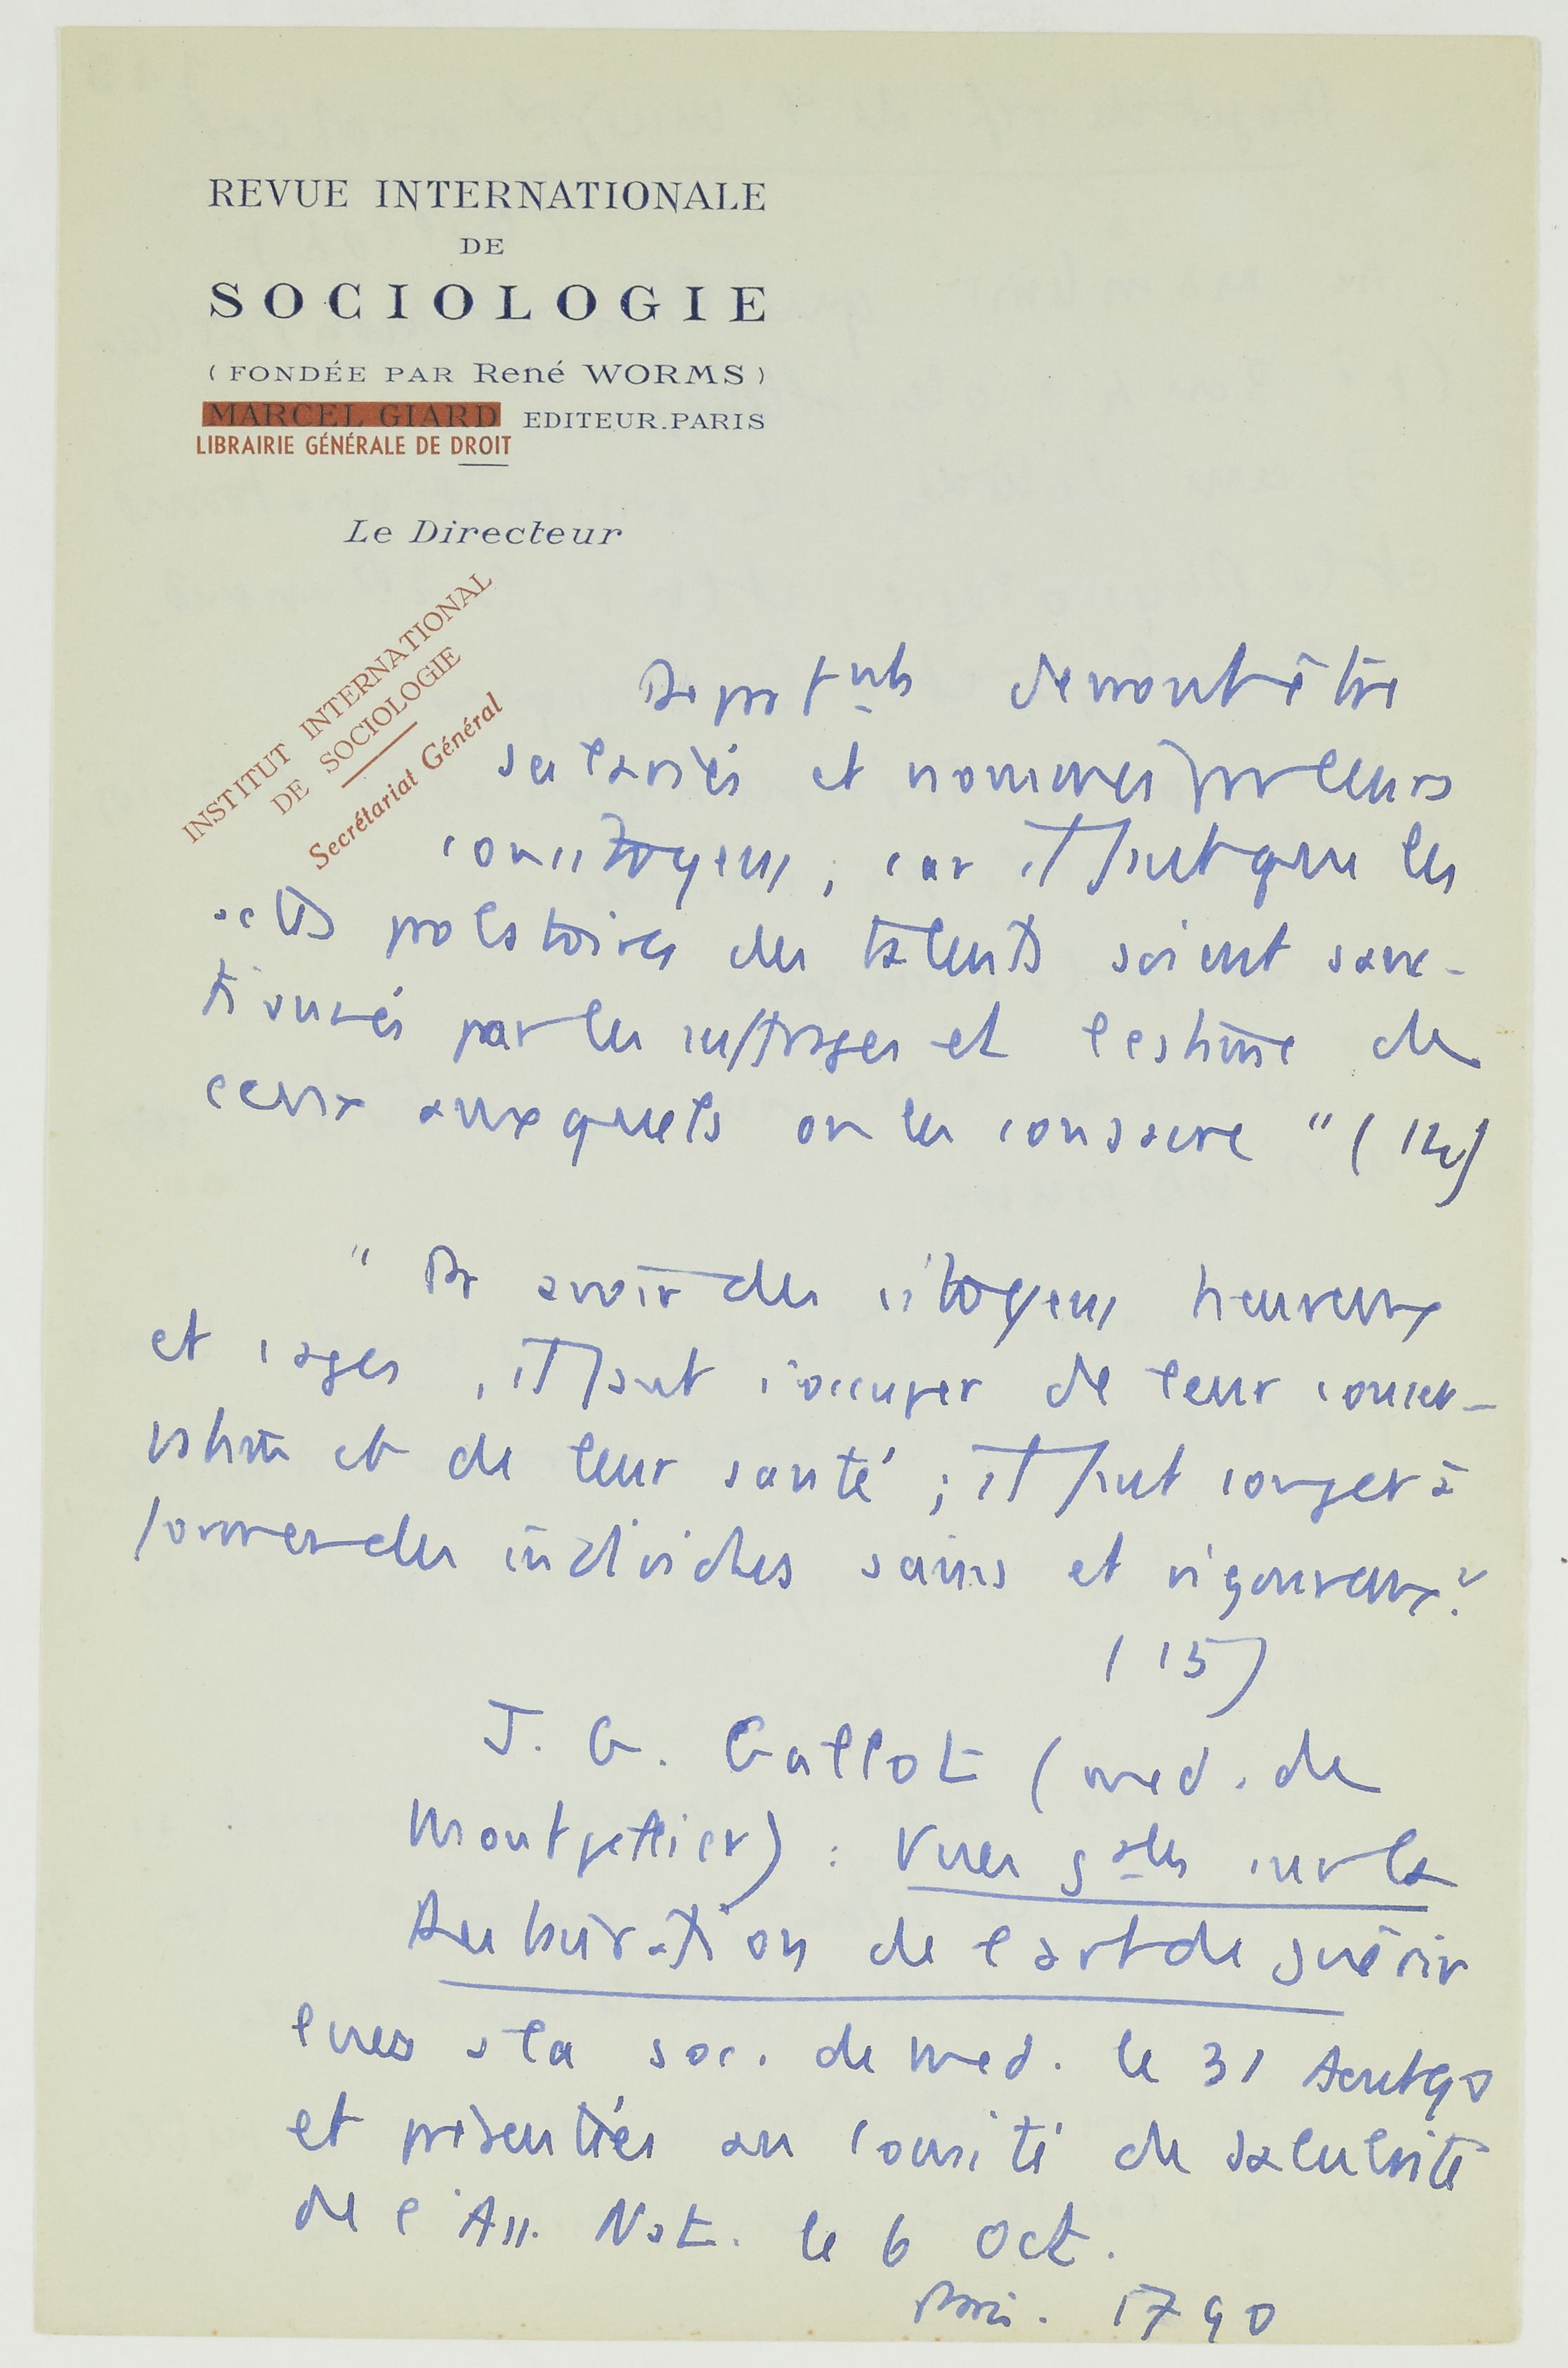 REVUE INTERNATIONALE
DE
SOCIOLOGIE
(FONDÉE PAR René WORMS)
MARCEL GIARD EDITEUR.PARIS
LIBRAIRIE GÉNÉRALE DE DROIT
Le Directeur
INSTITUT INTERNATIONAL
DE SOCIOLOGIE
Secrétariat Général
devront être
salariés et nommés par leurs
concitoyens, car il faut que les
actes probatoires des talents soient sanc-
tionnés par les suffrages et l'estime de
ceux auxquels on les consacre " (14)
" Pr avoir des citoyens heureux
et sages, il faut s'occuper de leur conser-
vation et de leur santé ; il faut songer à
former des individus sains et vigoureux "
(15)
J. G. Gallot (med. de
Montpellier) : Vues gales sur la
restauration de l'art de guérir
lues à la soc. de med. le 31 Aout 90
et présentées au comité de salubrité
de l'Ass. Nat. le 6 Oct.
Paris. 1790